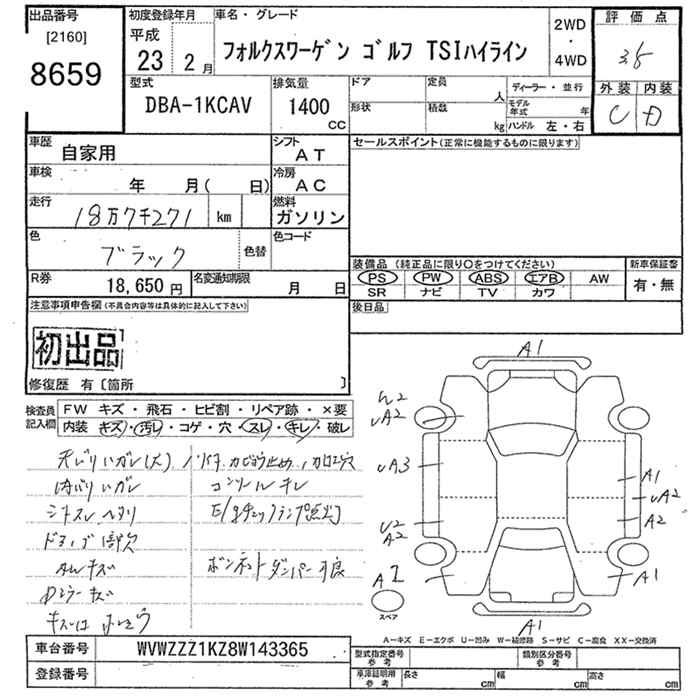 出品番号
[2160]
8659
初度登録年月
平成
23 2月
車名・グレード
フォルクスワーゲン ゴルフ TSIハイライン
2WD
・
4WD
評価点
3.5
外装 内装
C D
型式
DBA-1KCAV
排気量
1400
CC
ドア
形状
定員
人
積数
kg
ディーラー・並行
モデル年式 年
ハンドル 左・右
車歴
自家用
シフト
AT
セールスポイント(正常に機能するものに限ります)
車検
年 月( 日)
冷房
AC
走行
18万7千271 km
燃料
ガソリン
色
ブラック
色替
色コード
R券
18,650 円
名変通知期限
月 日
装備品 (純正品に限り○をつけてください)
PS PW ABS エアB AW
SR ナビ TV カワ
新車保証書
有・無
注意事項申告欄(不具合内容等は具体的に記入して下さい)
後日品
初出品
修復歴 有〔箇所 〕
検査員記入欄
FW キズ・飛石・ヒビ割・リペア跡・×要
内装 キズ・汚レ・コゲ・穴・スレ・キレ・破レ
天バリハガレ(大)
内バリハガレ
シートスレ ヘタリ
コンソールキレ
E/gチェックランプ点灯
AWキズ
Dミラーキズ
ボンネットダンパー不良
A1
A2
UA2
UA3
U2
A2
A1
UA2
A2
A1
A1
スペア
A1
A-キズ E-エクボ U-凹み W-補修跡 S-サビ C-腐食 XX-交換済
車台番号
WVWZZZ1KZ8W143365
登録番号
型式指定番号
参考
類別区分番号
参考
車庫証明用
参考
長さ cm
幅 cm
高さ cm